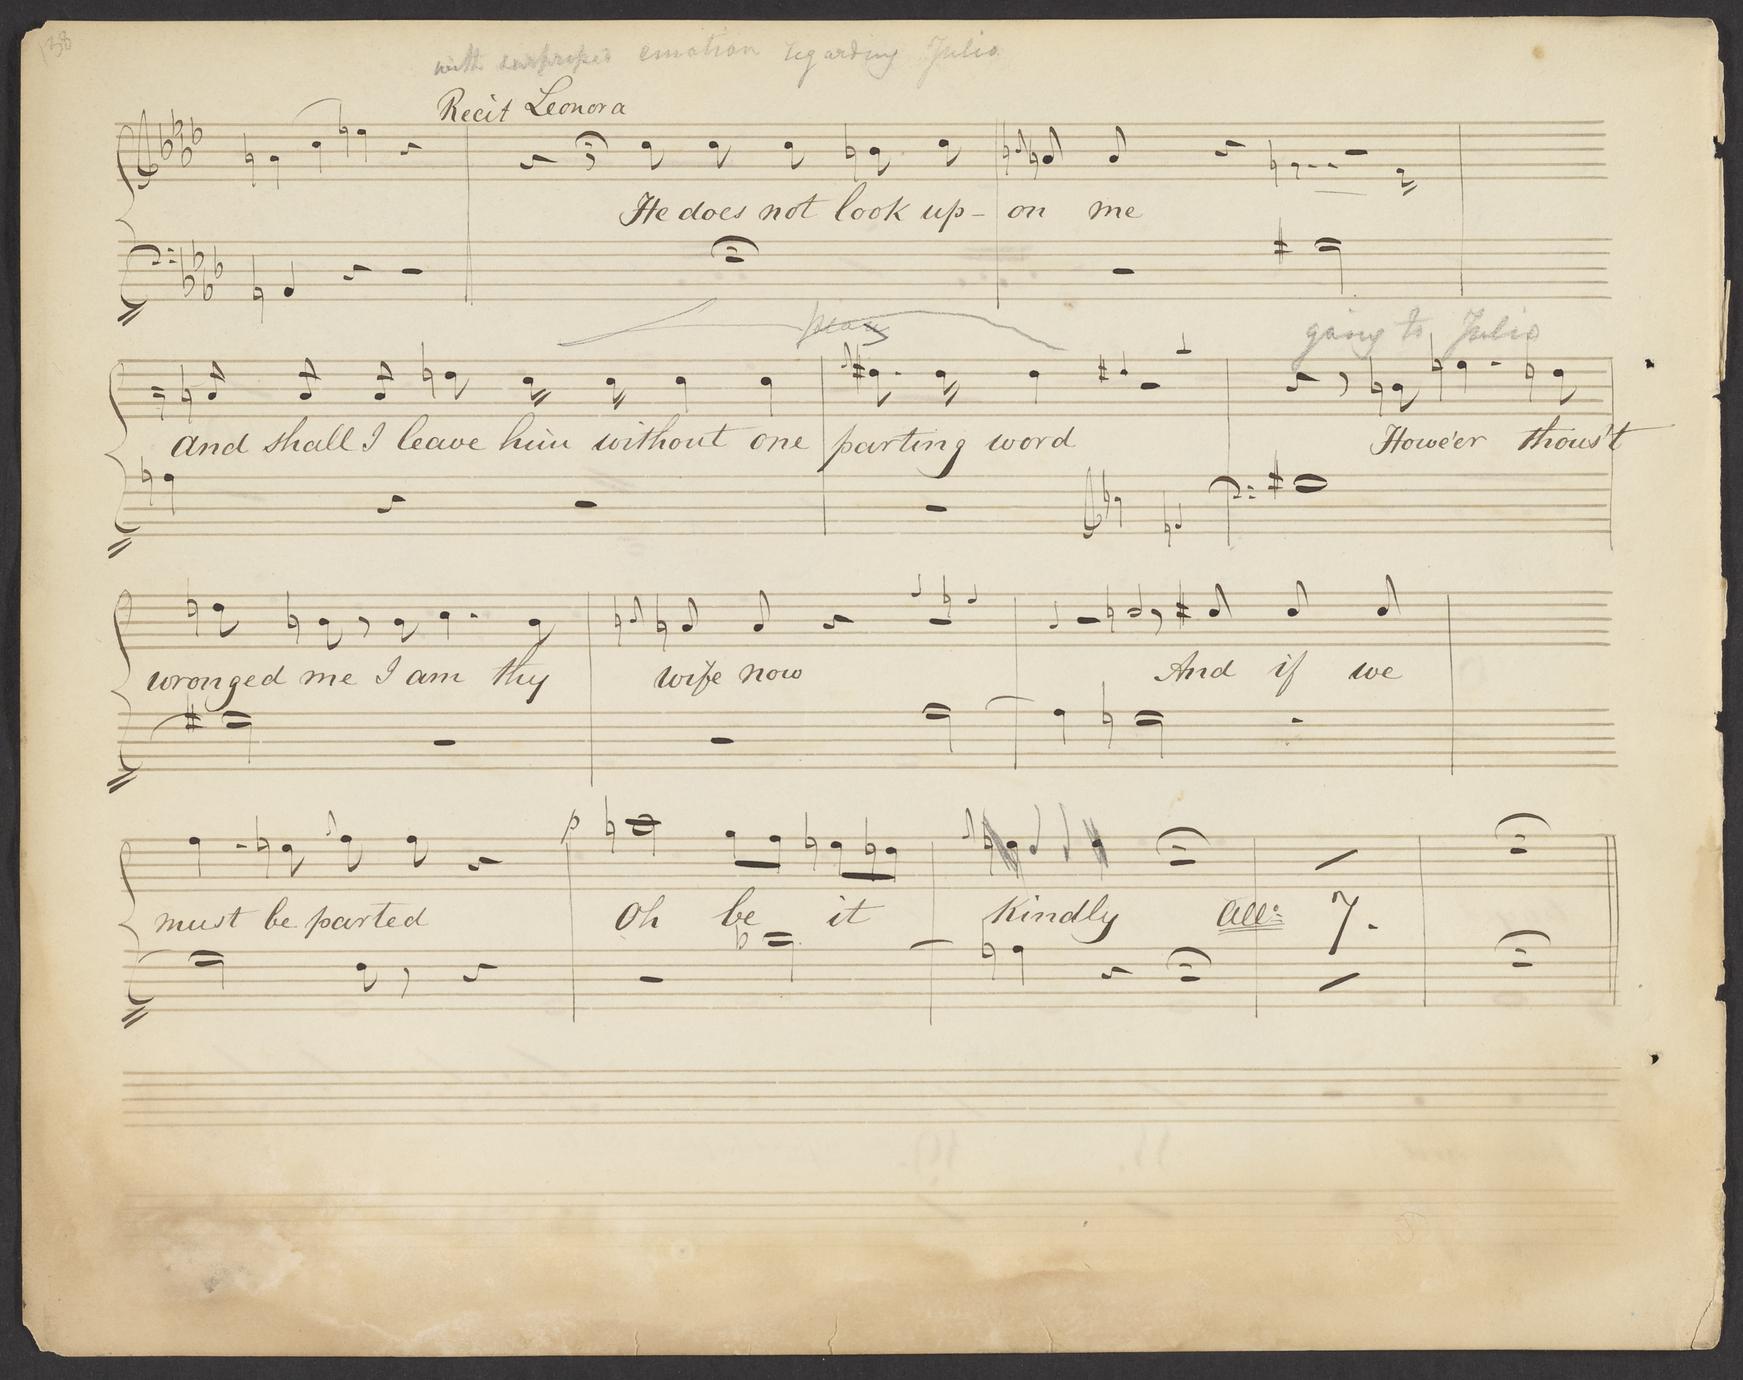 138
with emotion regarding Julio
Recit Leonora
He does not look up- on me
going to Julio
and shall I leave him without one parting word Howe'er thous't
wronged me I am thy wife now And if we
p
must be parted Oh be it Kindly All: 7.